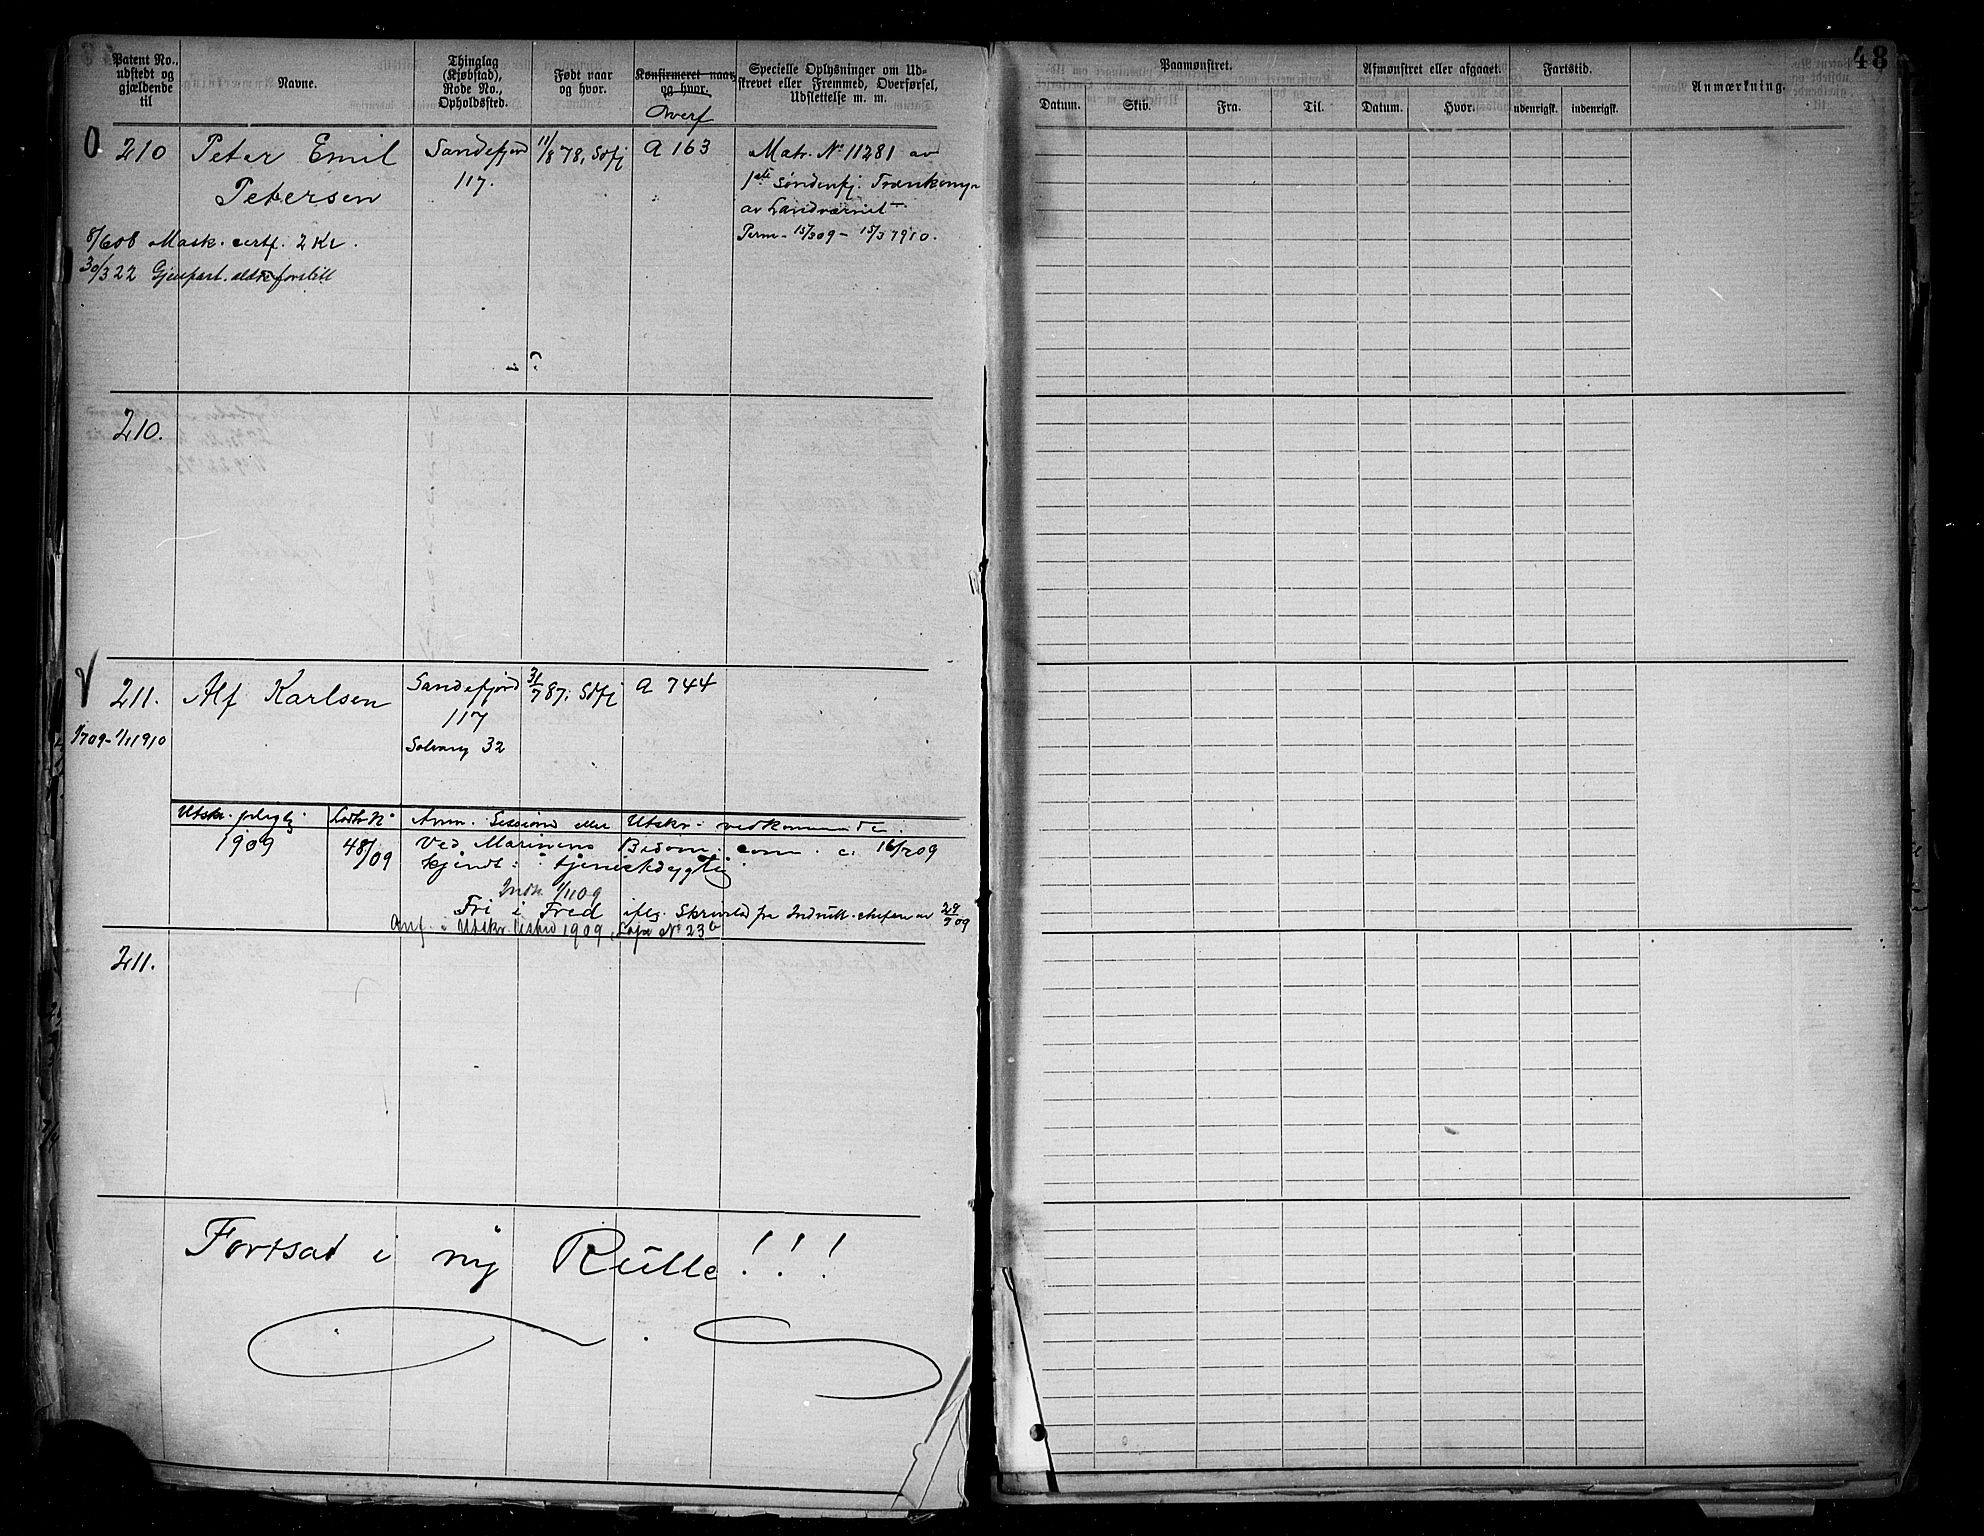 Patent No., udstedt og gjældende til
Navne.
Thinglag (Kjøbstad), Rode No., Opholdssted.
Født naar og hvor.
Konfirmeret naar og hvor.
Overf
Specielle Oplysninger om Udskrevet eller Fremmed, Overførsel, Udslettelse m. m.
Paamønstret.
Afmønstret eller afgaaet.
Fartstid.
Anmærkning.
48
Datum.
Skib.
Fra.
Til.
Datum.
Hvor.
udenrigsk.
indenrigsk.
0 210 Peter Emil Sandefjord 11/8 78, Sdfj A 163 Matr. No 11281 av
Petersen 117. 1ste Søndenfj. Trænkomp
av Landværnet
Perm. 15/3 09 - 15/3 1910.
8/6 08 Mask. certf. 2 Kr.
30/3 22 Gjenpart.
210.
V 211. Alf Karlsen Sandefjord 31/7 87; Sdfj A 744
117
1/7 09 - 1/1 1910 Solvang 32
Utskr. pligtig Lodtr No Anm. Sessiond eller Utskr. vedkommende.
1909 48/09 Ved Marinens com. 16/2 09
kjendt: tjenestdygtig
Indk. 1/11 09
Fri i Fred iflg. Skrivelse fra Indrull.chefen av 29/9 09
Anf. i Utskr. listen 1909, No 23 b
211.
Fortsat i ny Rulle!!!